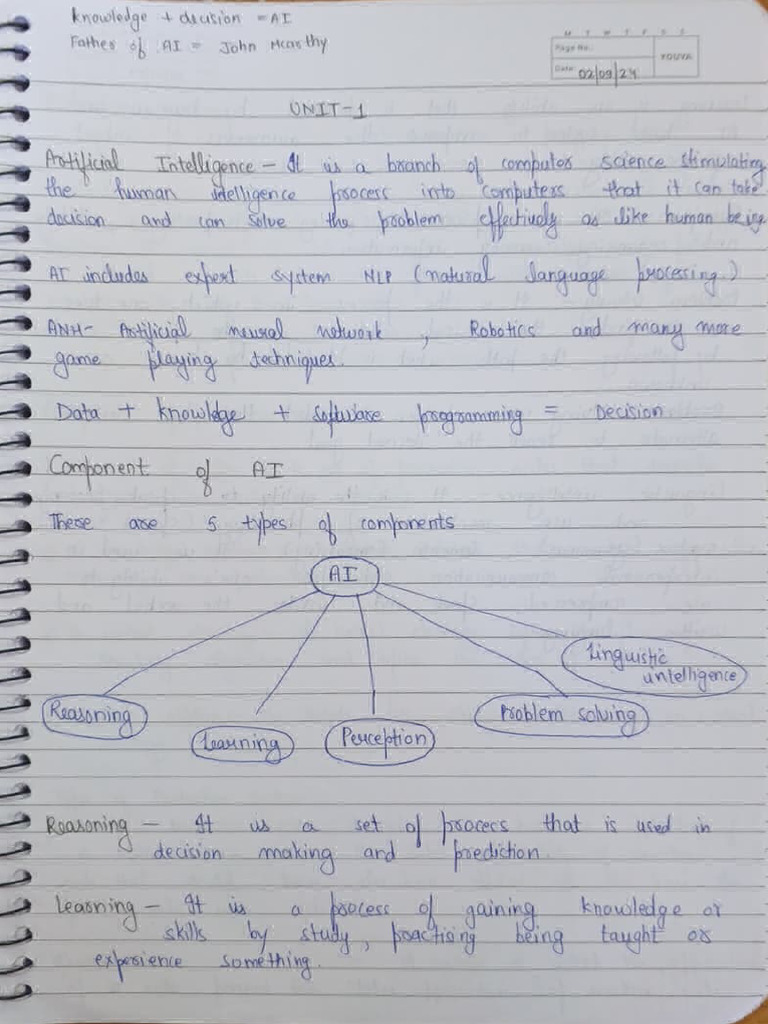 knowledge + decision = AI
Father of AI = John Mcarthy
M T W T F S S
Page No.
YOUVA
Date: 02/09/24
UNIT-1
Artificial Intelligence - It is a branch of computer science stimulating
the human intelligence process into computers that it can take
decision and can solve the problem effectively as like human being
AI includes expert system NLP (natural language processing)
ANH- Artificial neural network , Robotics and many more
game playing techniques.
Data + knowledge + software programming = Decision
Component of AI
There are 5 types of components
AI
Linguistic
intelligence
Reasoning
Learning
Perception
Problem solving
Reasoning - It is a set of process that is used in
decision making and prediction.
Learning - It is a process of gaining knowledge or
skills by study, practising being taught or
experience something.